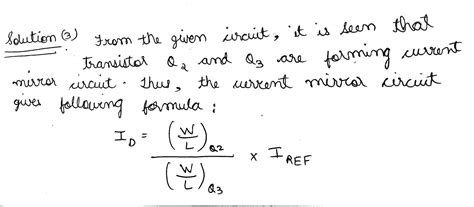 Solution (3) From the given circuit, it is seen that
transistor Q2 and Q3 are forming current
mirror circuit. Thus, the current mirror circuit
gives following formula :
I_D = (W/L)_Q2 / (W/L)_Q3 × I_REF